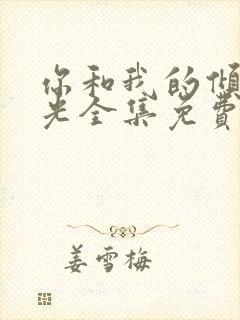 你和我的倾
光全集免费
姜雪梅